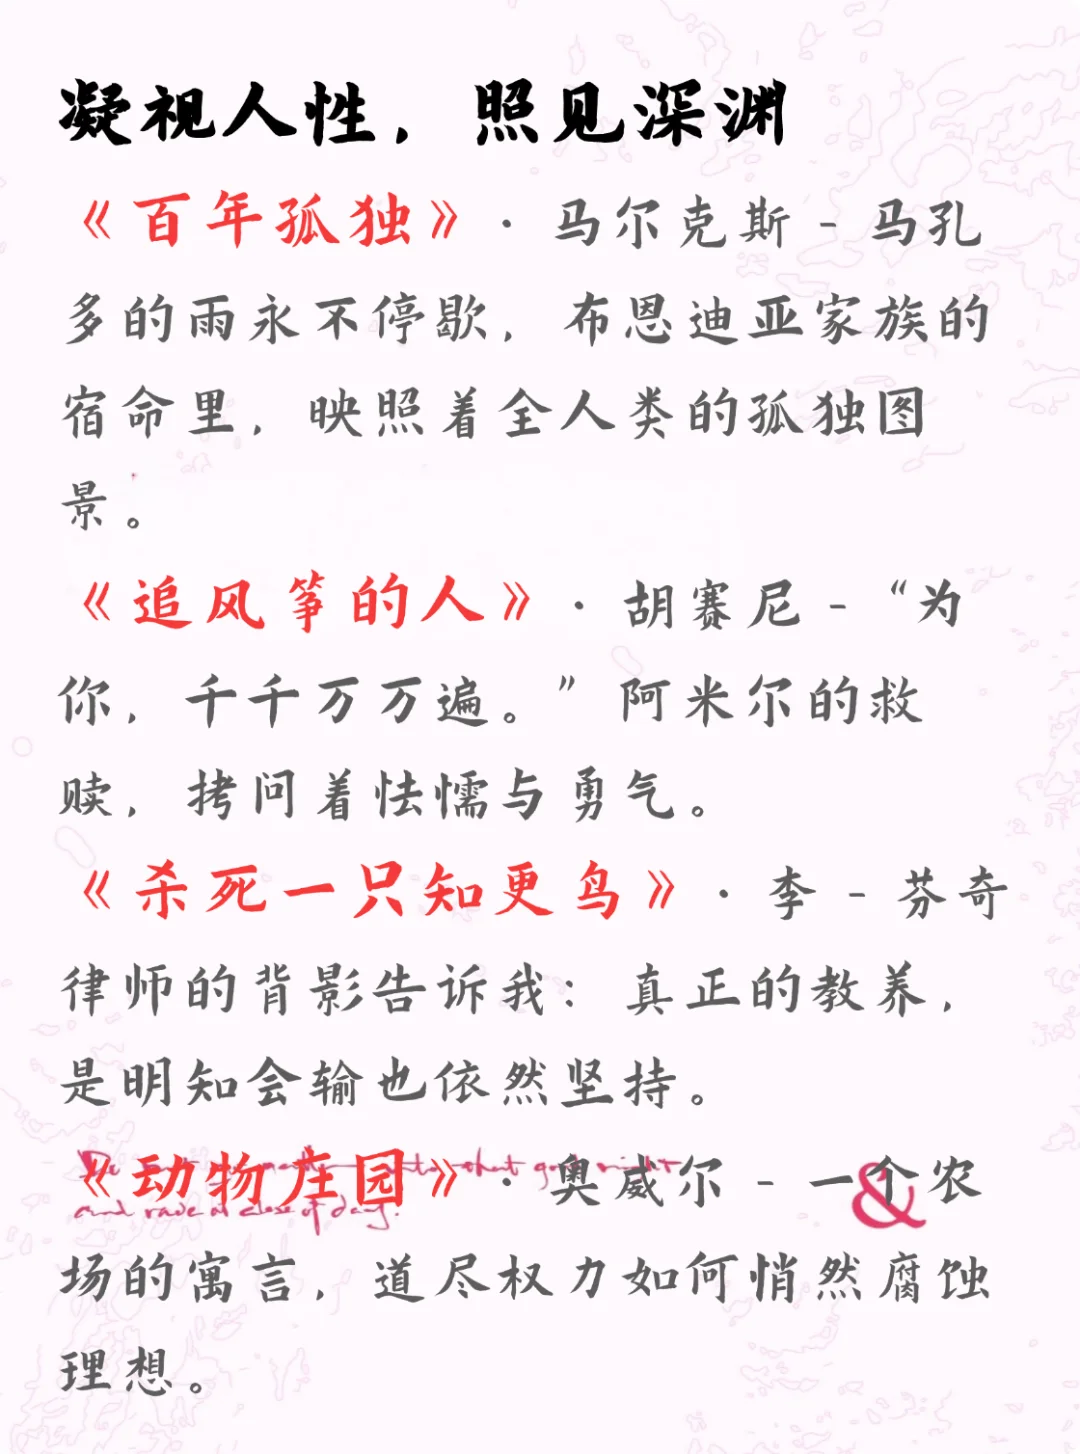 凝视人性，照见深渊
《百年孤独》· 马尔克斯 - 马孔
多的雨永不停歇，布恩迪亚家族的
宿命里，映照着全人类的孤独图
景。
《追风筝的人》· 胡赛尼 - “为
你，千千万万遍。”阿米尔的救
赎，拷问着怯懦与勇气。
《杀死一只知更鸟》· 李 - 芬奇
律师的背影告诉我：真正的教养，
是明知会输也依然坚持。
《动物庄园》· 奥威尔 - 一个农
that good night
&
and rave at close of day.
场的寓言，道尽权力如何悄然腐蚀
理想。